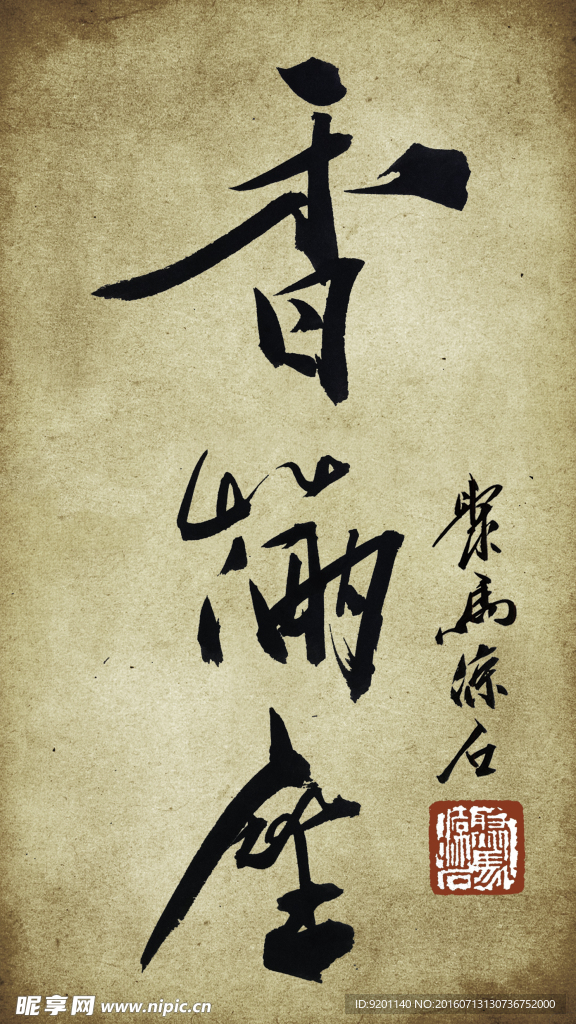 香满座
聚馬石
昵享网 www.nipic.cn
ID:9201140 NO:20160713130736752000